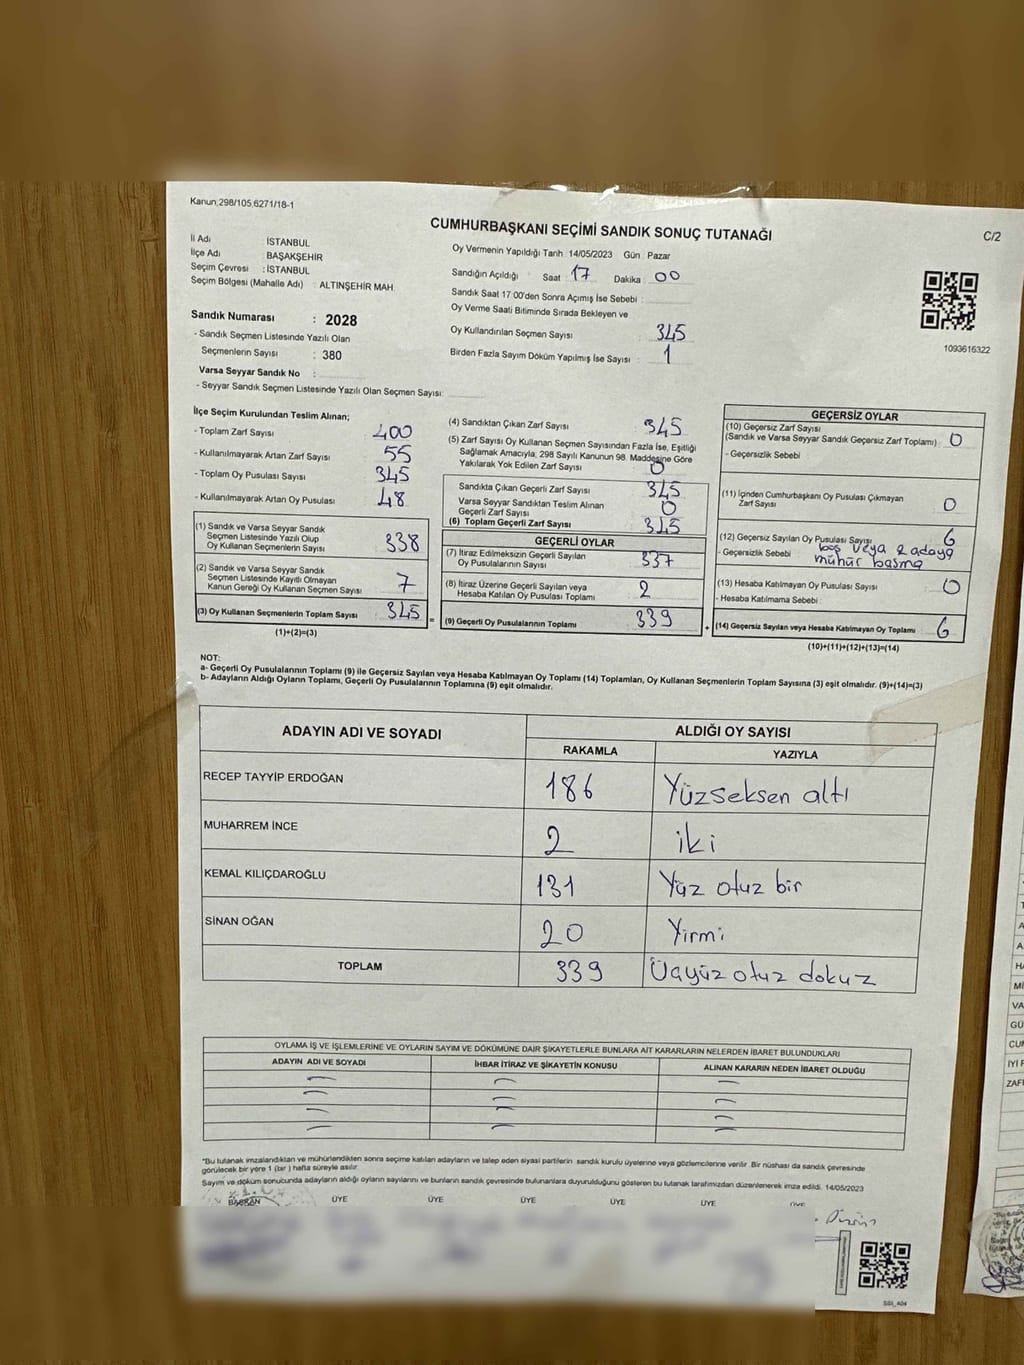 Kanun,298/105,6271/18-1
CUMHURBAŞKANI SEÇİMİ SANDIK SONUÇ TUTANAĞI
C/2
İl Adı İSTANBUL
İlçe Adı BAŞAKŞEHİR
Seçim Çevresi : İSTANBUL
Seçim Bölgesi (Mahalle Adı) : ALTINŞEHİR MAH.
Sandık Numarası : 2028
- Sandık Seçmen Listesinde Yazılı Olan
Seçmenlerin Sayısı : 380
Varsa Seyyar Sandık No :
- Seyyar Sandık Seçmen Listesinde Yazılı Olan Seçmen Sayısı:
Oy Vermenin Yapıldığı Tarih 14/05/2023 Gün : Pazar
Sandığın Açıldığı Saat 17 Dakika 00
Sandık Saat 17:00'den Sonra Açımış İse Sebebi :
Oy Verme Saati Bitiminde Sırada Bekleyen ve
Oy Kullandırılan Seçmen Sayısı : 345
Birden Fazla Sayım Döküm Yapılmış İse Sayısı : 1
1093616322
İlçe Seçim Kurulundan Teslim Alınan;
- Toplam Zarf Sayısı 400
- Kullanılmayarak Artan Zarf Sayısı 55
- Toplam Oy Pusulası Sayısı 345
- Kullanılmayarak Artan Oy Pusulası 48
(1) Sandık ve Varsa Seyyar Sandık
Seçmen Listesinde Yazılı Olup
Oy Kullanan Seçmenlerin Sayısı 338
(2) Sandık ve Varsa Seyyar Sandık
Seçmen Listesinde Kayıtlı Olmayan
Kanun Gereği Oy Kullanan Seçmen Sayısı 7
(3) Oy Kullanan Seçmenlerin Toplam Sayısı 345
(1)+(2)=(3)
(4) Sandıktan Çıkan Zarf Sayısı 345
(5) Zarf Sayısı Oy Kullanan Seçmen Sayısından Fazla İse, Eşitliği
Sağlamak Amacıyla; 298 Sayılı Kanunun 98. Maddesine Göre
Yakılarak Yok Edilen Zarf Sayısı 0
Sandıkta Çıkan Geçerli Zarf Sayısı 345
Varsa Seyyar Sandıktan Teslim Alınan
Geçerli Zarf Sayısı 0
(6) Toplam Geçerli Zarf Sayısı 345
GEÇERLİ OYLAR
(7) İtiraz Edilmeksizin Geçerli Sayılan
Oy Pusulalarının Sayısı 337
(8) İtiraz Üzerine Geçerli Sayılan veya
Hesaba Katılan Oy Pusulası Toplamı 2
= (9) Geçerli Oy Pusulalarının Toplamı 339 +
GEÇERSİZ OYLAR
(10) Geçersiz Zarf Sayısı
(Sandık ve Varsa Seyyar Sandık Geçersiz Zarf Toplamı) 0
- Geçersizlik Sebebi
(11) İçinden Cumhurbaşkanı Oy Pusulası Çıkmayan
Zarf Sayısı 0
(12) Geçersiz Sayılan Oy Pusulası Sayısı 6
- Geçersizlik Sebebi boş veya 2 adaya
mühür basma
(13) Hesaba Katılmayan Oy Pusulası Sayısı 0
- Hesaba Katılmama Sebebi :
(14) Geçersiz Sayılan veya Hesaba Katılmayan Oy Toplamı 6
(10)+(11)+(12)+(13)=(14)
NOT:
a- Geçerli Oy Pusulalarının Toplamı (9) ile Geçersiz Sayılan veya Hesaba Katılmayan Oy Toplamı (14) Toplamları, Oy Kullanan Seçmenlerin Toplam Sayısına (3) eşit olmalıdır. (9)+(14)=(3)
b- Adayların Aldığı Oyların Toplamı, Geçerli Oy Pusulalarının Toplamına (9) eşit olmalıdır.
ADAYIN ADI VE SOYADI ALDIĞI OY SAYISI
RAKAMLA YAZIYLA
RECEP TAYYİP ERDOĞAN 186 Yüzseksen altı
MUHARREM İNCE 2 iki
KEMAL KILIÇDAROĞLU 131 Yüz otuz bir
SİNAN OĞAN 20 Yirmi
TOPLAM 339 Üçyüz otuz dokuz
OYLAMA İŞ VE İŞLEMLERİNE VE OYLARIN SAYIM VE DÖKÜMÜNE DAİR ŞİKAYETLERLE BUNLARA AİT KARARLARIN NELERDEN İBARET BULUNDUKLARI
ADAYIN ADI VE SOYADI İHBAR İTİRAZ VE ŞİKAYETİN KONUSU ALINAN KARARIN NEDEN İBARET OLDUĞU
*Bu tutanak imzalandıktan ve mühürlendikten sonra seçime katılan adayların ve talep eden siyasi partilerin sandık kurulu üyelerine veya gözlemcilerine verilir. Bir nüshası da sandık çevresinde
görülecek bir yere 1 (bir) hafta süreyle asılır.
Sayım ve döküm sonucunda adayların aldığı oyların sayılarını ve bunların sandık çevresinde bulunanlara duyurulduğunu gösteren bu tutanak tarafımızdan düzenlenerek imza edildi. 14/05/2023
BAŞKAN ÜYE ÜYE ÜYE ÜYE ÜYE ÜYE
SSI_404